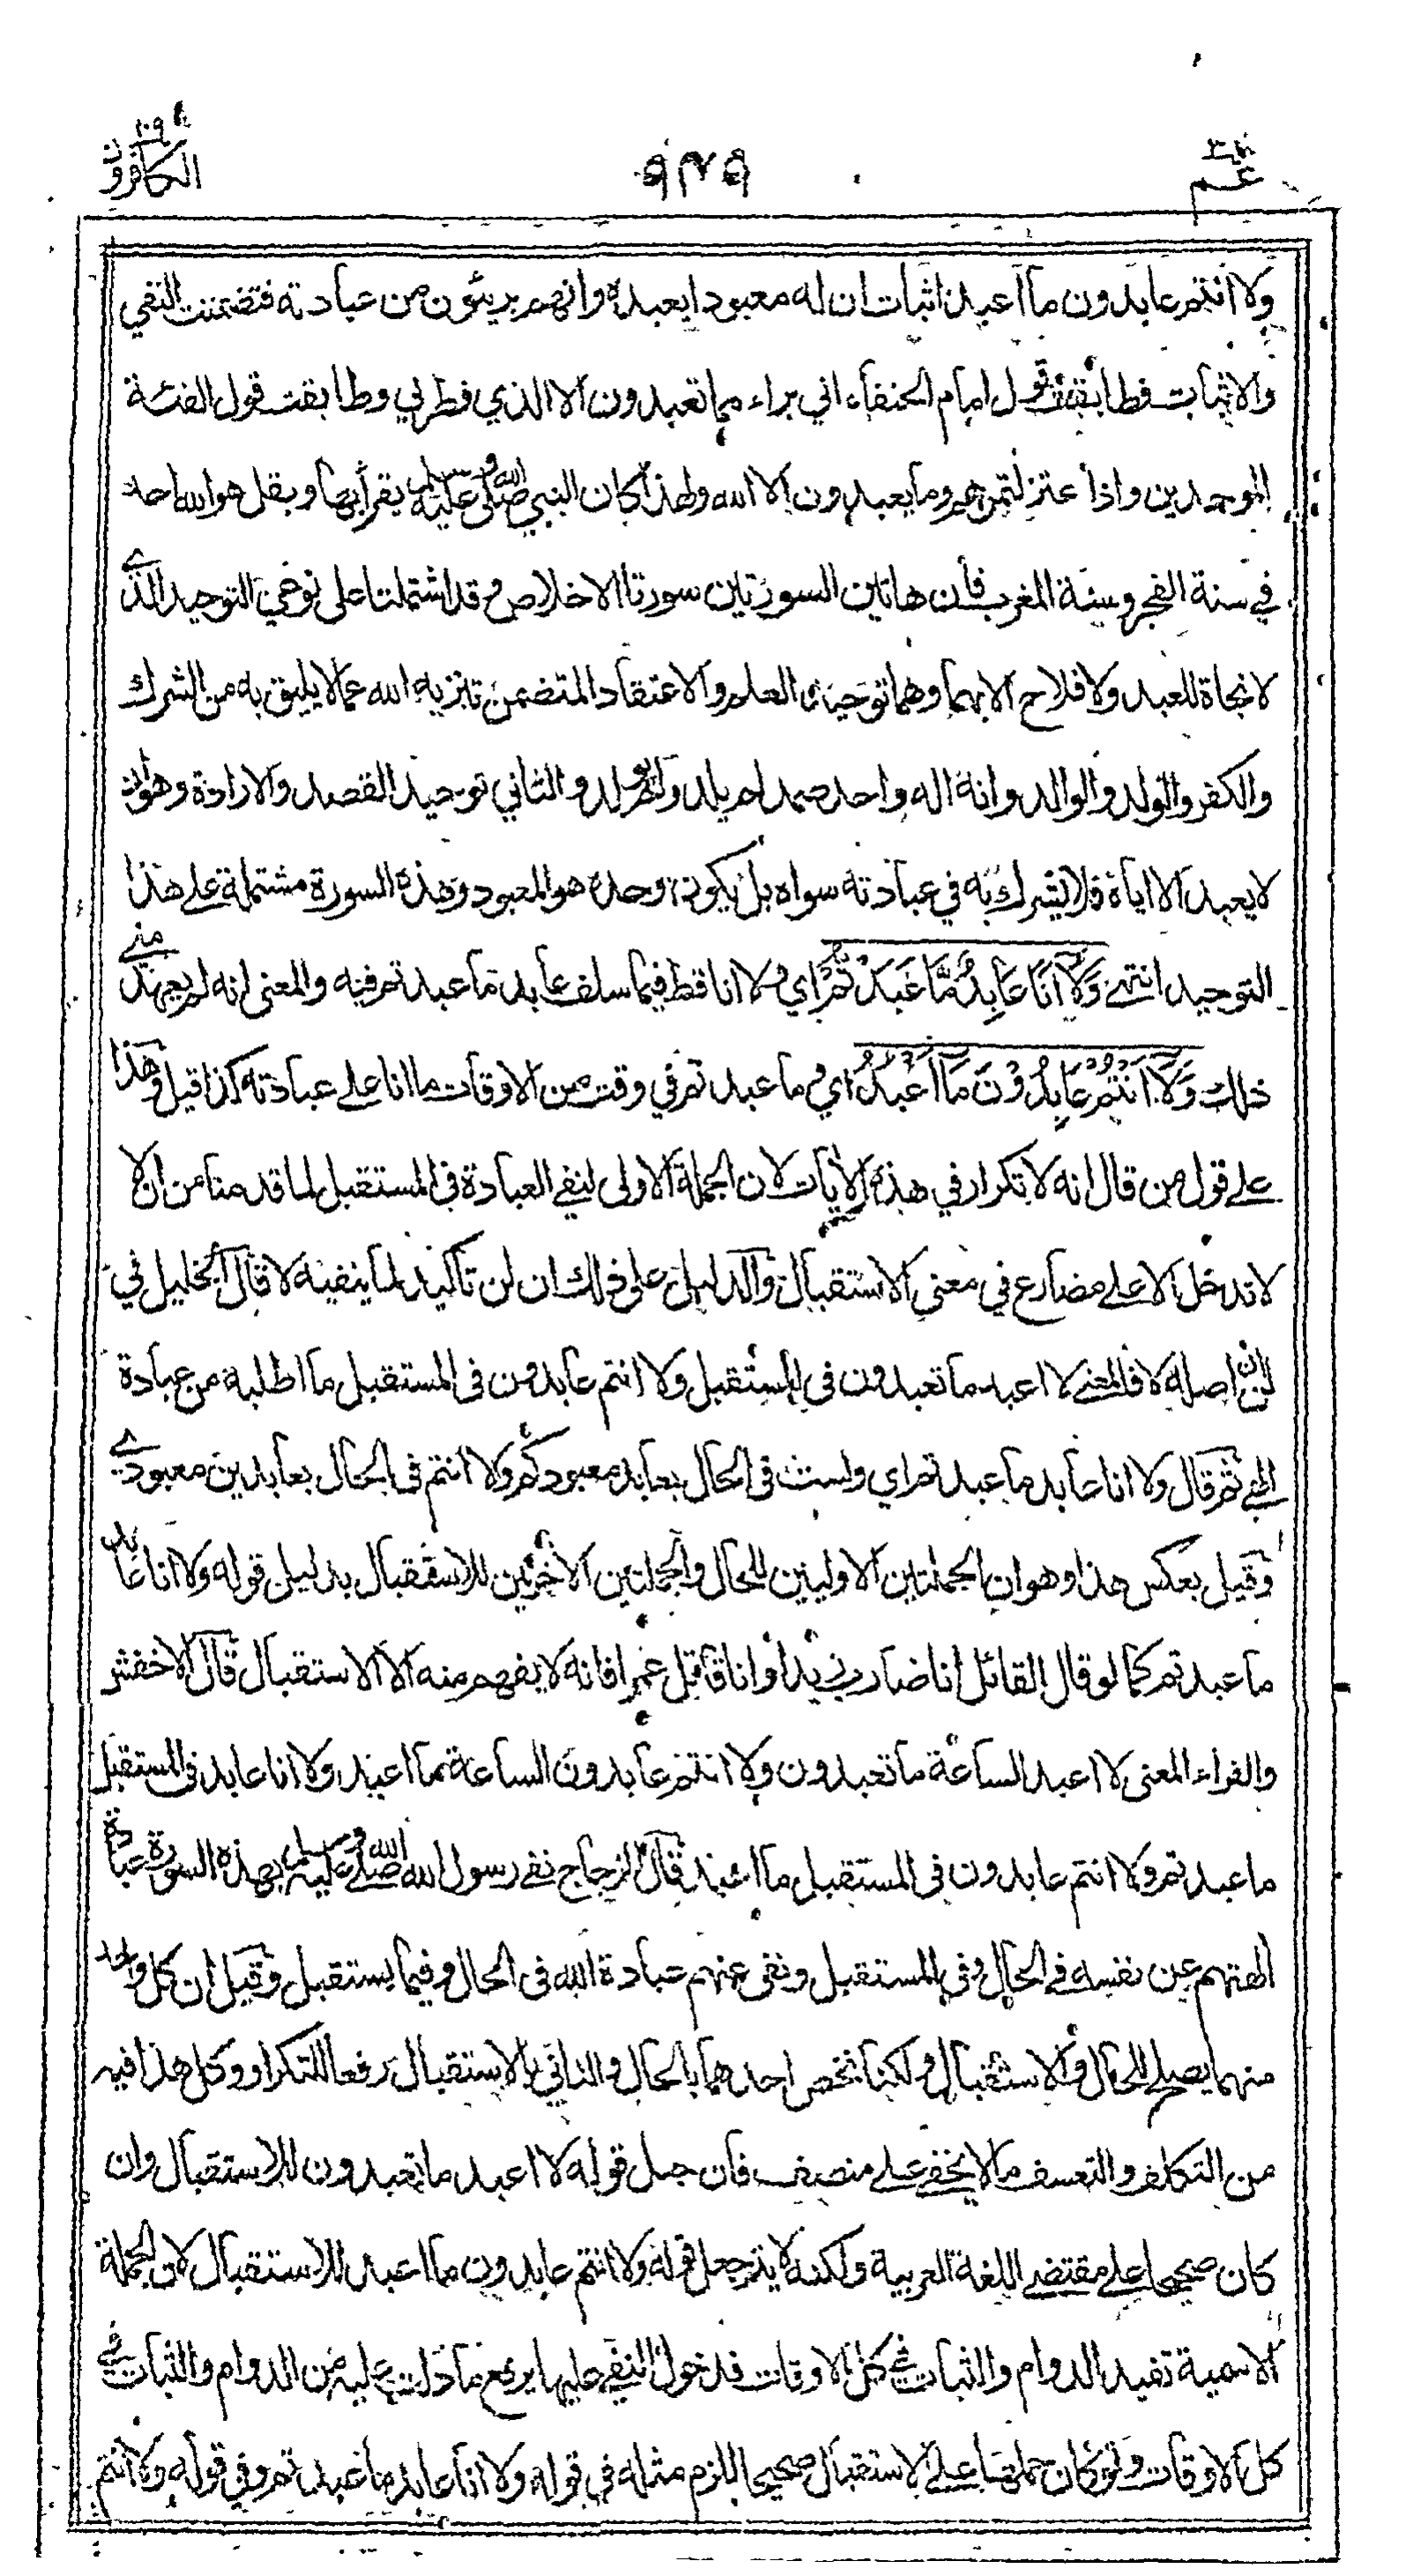 عم ٣٠
٩٣٩
الكافرون ١٠٩
ولا انتم عابدون ما اعبد اثبات ان له معبودا يعبده وانهم بريئون من عبادته فتضمنت النفي
والاثبات فطابقت قول امام الحنفاء اني براء مما تعبدون الا الذي فطرني وطابقت قول الفئة
الموحدين واذا عتزلتموهم وما يعبدون الا الله ولهذا كان النبي صلى الله عليه وسلم يقرأ بها وبقل هو الله احد
في سنة الفجر وسنة المغرب فان هاتين السورتين سورتا الاخلاص وقد اشتملتا على نوعي التوحيد الذي
لا نجاة للعبد ولا فلاح الا بهما وهما توحيد العلم والاعتقاد المتضمن تنزيه الله عما لا يليق به من الشرك
والكفر والولد والوالد وانه اله واحد صمد لم يلد ولم يولد والثاني توحيد القصد والارادة وهو ان
لا يعبد الا اياه فلا يشرك به في عبادته سواه بل يكون وحده هو المعبود وهذه السورة مشتملة على هذا
التوحيد انتهى وَلَا أَنَا عَابِدٌ مَّا عَبَدْتُّمْ اي ولا انا قط فيما سلف عابد ما عبدتم فيه والمعنى انه لم يعهد مني
ذلك وَلَا أَنْتُمْ عَابِدُوْنَ مَا أَعْبُدُ اي وما عبدتم في وقت من الاوقات ما انا على عبادته كذا قيل وهذا
على قول من قال انه لا تكرار في هذه الآيات لان الجملة الاولى لنفي العبادة في المستقبل لما قدمنا من ان لا
لا تدخل الا على مضارع في معنى الاستقبال والدليل على ذلك ان لن تأكيد لما ينفيه لا قال الخليل في
لن ان اصله لا فالمعنى لا اعبد ما تعبدون في المستقبل ولا انتم عابدون في المستقبل ما اطلبه من عبادة
الهي ثم قال ولا انا عابد ما عبدتم اي ولست في الحال بعابد معبودكم ولا انتم في الحال بعابدين معبودي
وقيل بعكس هذا وهو ان الجملتين الاوليين للحال والجملتين الاخريين للاستقبال بدليل قوله ولا انا عابد
ما عبدتم كما لو قال القائل انا ضارب زيدا وانا قاتل عمرا فانه لا يفهم منه الا الاستقبال قال الاخفش
والفراء المعنى لا اعبد الساعة ما تعبدون ولا انتم عابدون الساعة ما اعبد ولا انا عابد في المستقبل
ما عبدتم ولا انتم عابدون في المستقبل ما اعبد قال الزجاج نفى رسول الله صلى الله عليه وسلم بهذه السورة عبادة
الهتهم عن نفسه في الحال وفي المستقبل ونفى عنهم عبادة الله في الحال وفيما يستقبل وقيل ان كل واحد
منهما يصلح للحال والاستقبال ولكنا نخص احدهما بالحال والثاني بالاستقبال رفعا للتكرار وكل هذا فيه
من التكلف والتعسف ما لا يخفى على منصف فان جعل قوله لا اعبد ما تعبدون للاستقبال وان
كان صحيحا على مقتضى اللغة العربية ولكنه لا يتم جعل قوله ولا انتم عابدون ما اعبد للاستقبال لان الجملة
الاسمية تفيد الدوام والثبات في كل الاوقات فدخول النفي عليها يرفع ما دلت عليه من الدوام والثبات في
كل الاوقات ولو كان حملها على الاستقبال صحيحا للزم مثله في قوله ولا انا عابد ما عبدتم وفي قوله ولا انتم